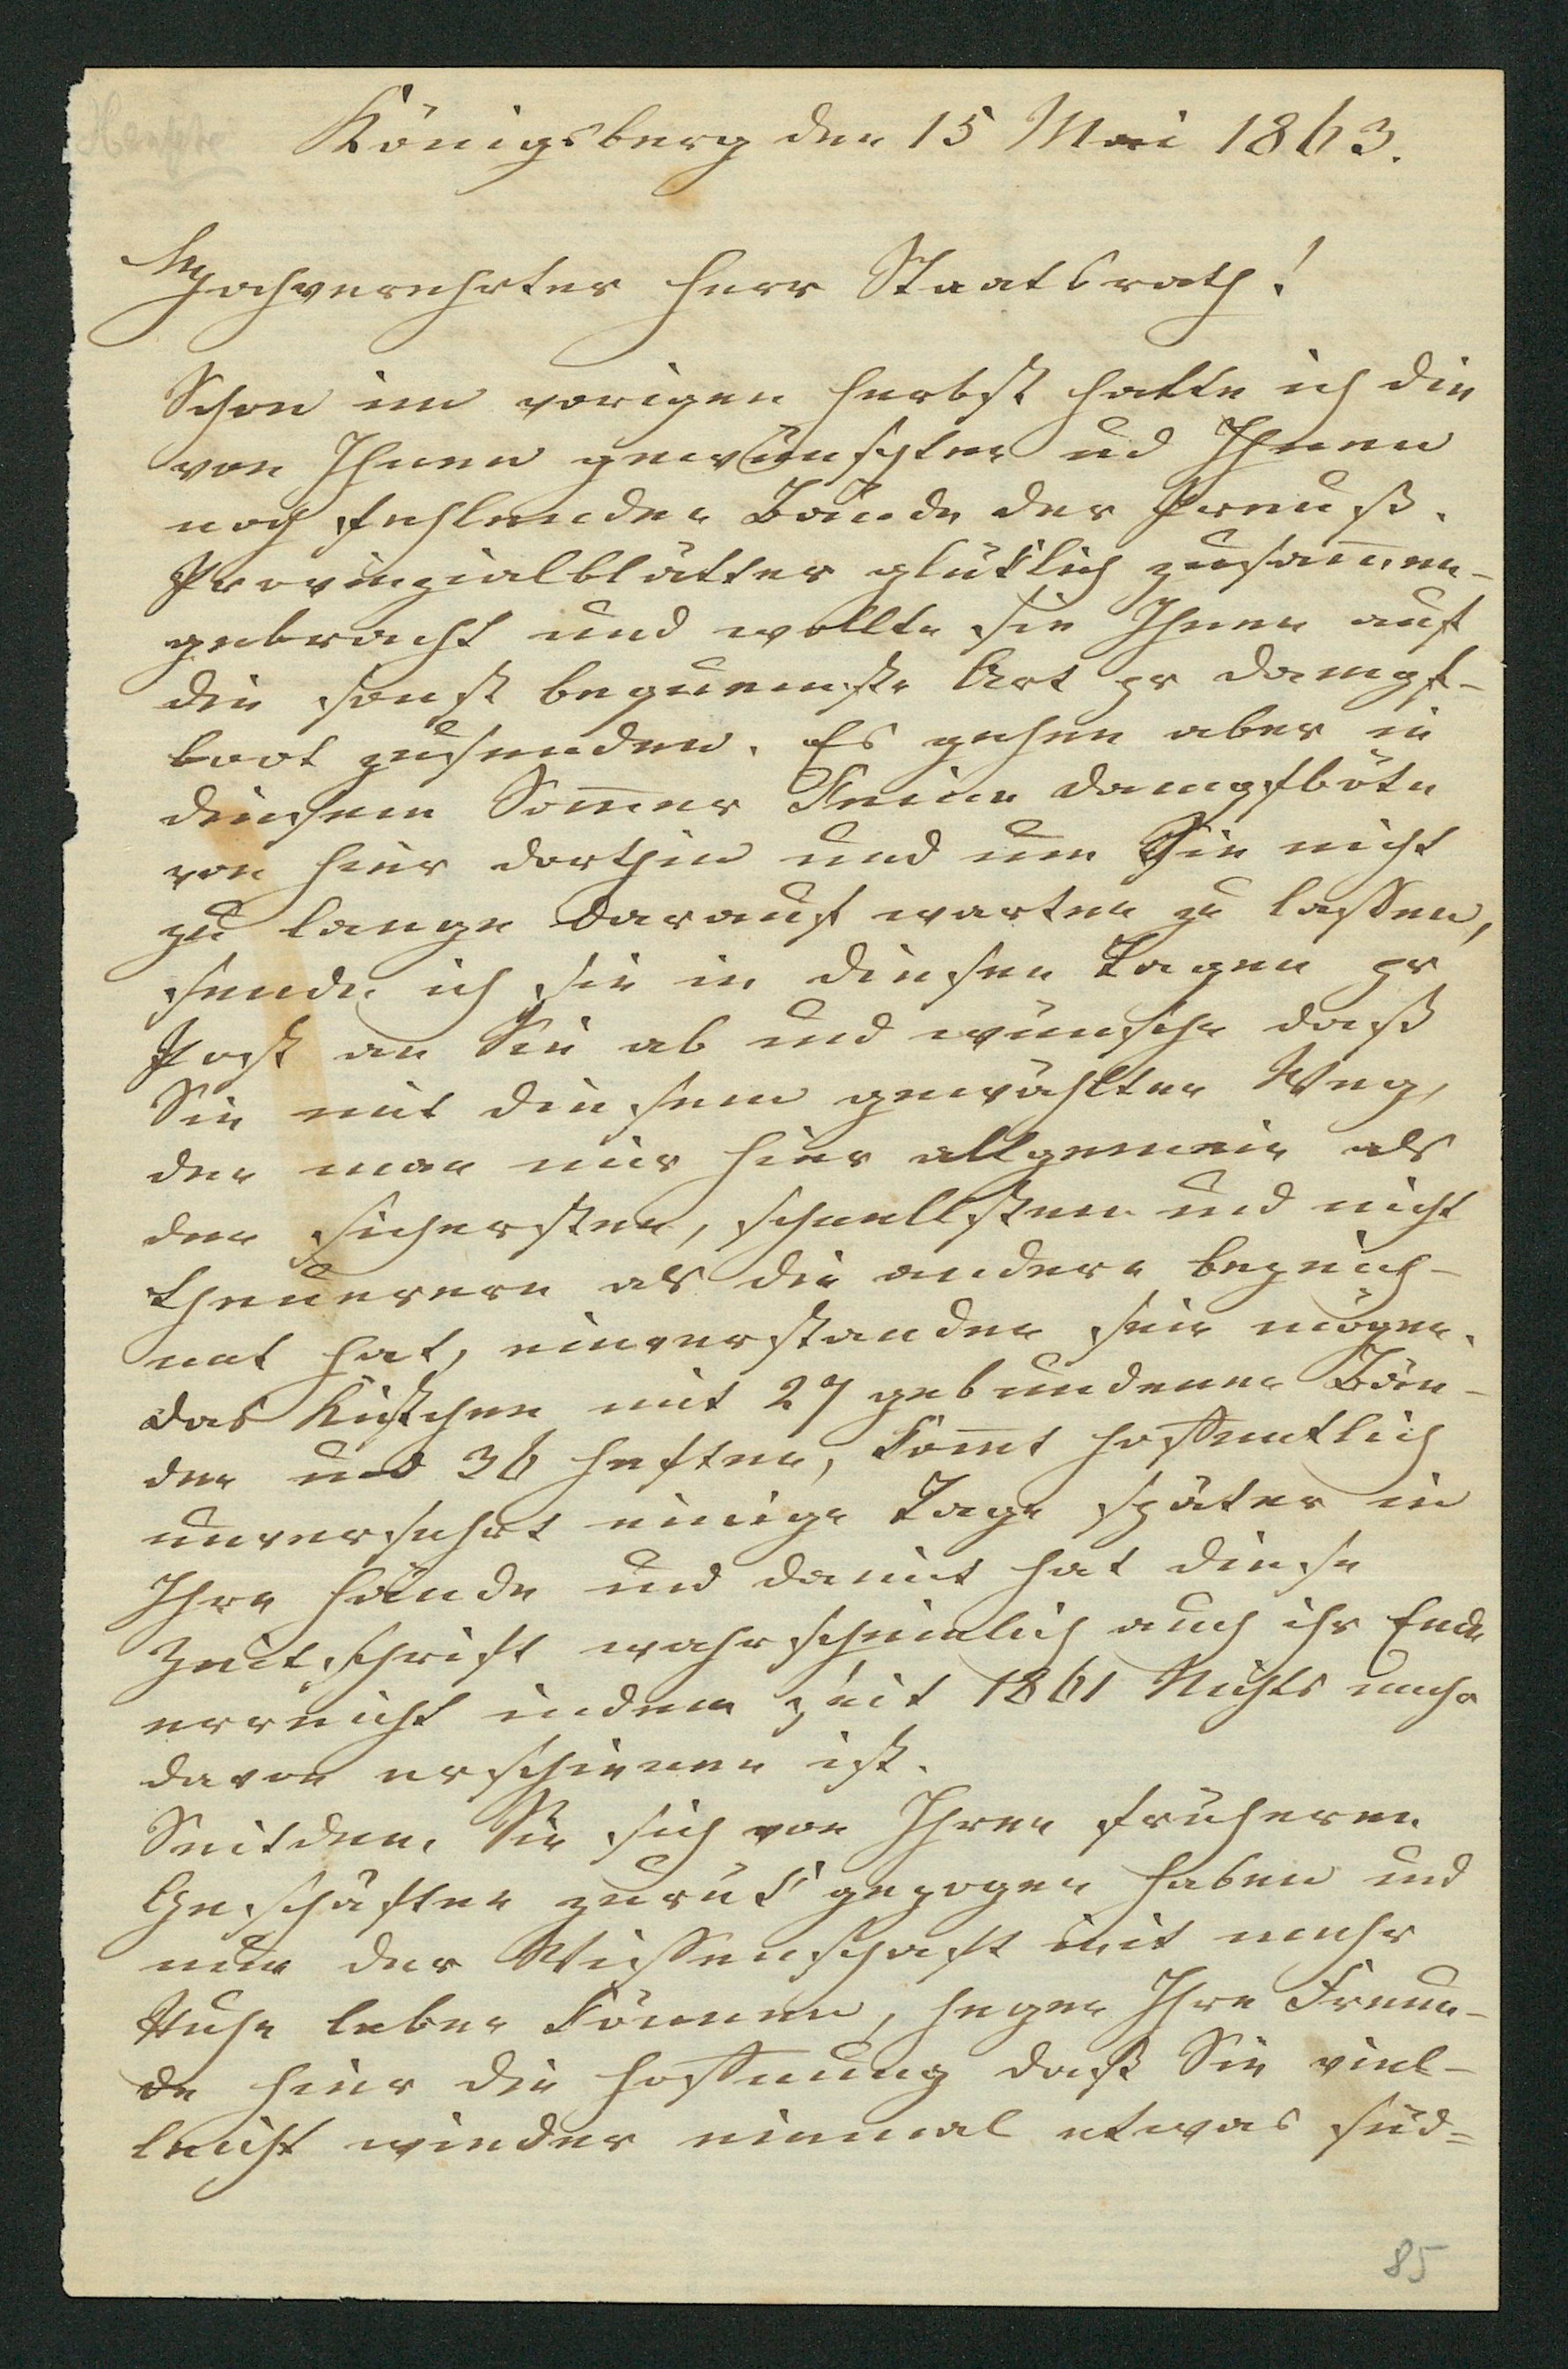 Königsberg den 15 Mai 1863.
Hochverehrter Herr Staatsrath!
Schon im vorigen Herbst hatte ich die
von Ihnen gewünschten und Ihnen
noch fehlenden Bände der Preuß.
Provinzialblätter glücklich zusam̄en-
gebracht und wollte sie Ihnen auf
die sonst bequemste Art pr Dampf-
boot zusenden. Es gehen aber in
diesem Som̄er keine Dampfböte
von hier dorthin und um Sie nicht
zu lange darauf warten zu lassen,
sende ich sie in diesen Tagen pr
Post an Sie ab und wünsche daß
Sie mit diesem gewählten Weg,
den man mir hier allgemein als
den sichersten, schnellsten und nicht
theuereren als die andern bezeich-
net hat, einverstanden sein mögen.
Das Kistchen mit 27 gebundenen Bän-
den und 36 Heften, kom̄t hoffentlich
unversehrt einige Tage später in
Ihre Hände und damit hat diese
Zeitschrift wahrscheinlich auch ihr Ende
erreicht indem seit 1861 Nichts mehr
davon erschienen ist.
Seitdem Sie sich von Ihren früheren
Geschäften zurück gezogen haben und
nun der Wissenschaft mit mehr
Ruhe leben können, hegen Ihre Freun-
de hier die Hoffnung daß Sie viel-
leicht wieder einmal etwas süd=
85